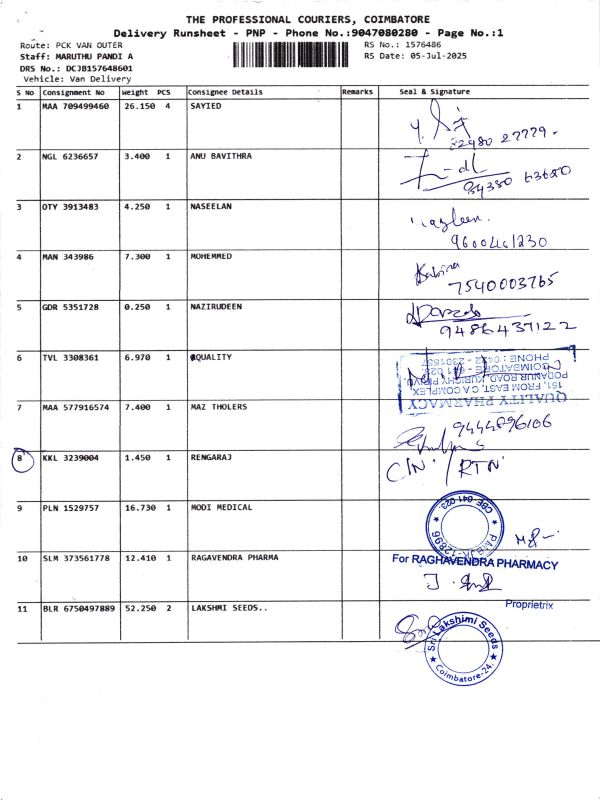 THE PROFESSIONAL COURIERS, COIMBATORE
Delivery Runsheet - PNP - Phone No.:9047080280 - Page No.:1
Route: PCK VAN OUTER RS No.: 1576486
Staff: MARUTHU PANDI A RS Date: 05-Jul-2025
DRS No.: DCJB157648601
Vehicle: Van Delivery
S No Consignment No Weight PCS Consignee Details Remarks Seal & Signature
1 MAA 709499460 26.150 4 SAYIED
27779
2 NGL 6236657 3.400 1 ANU BAVITHRA
94380 63620
3 OTY 3913483 4.250 1 NASEELAN
9600461230
4 MAN 343986 7.300 1 MOHEMMED
7540003765
5 GDR 5351728 0.250 1 NAZIRUDEEN
9486437122
6 TVL 3308361 6.970 1 QUALITY
QUALITY PHARMACY
151, FROM EAST, C.A COMPLEX,
PODANUR ROAD, KURICHY
COIMBATORE - 641 023
PHONE : 0422 - 2301537
7 MAA 577916574 7.400 1 MAZ THOLERS
9444896106
8 KKL 3239004 1.450 1 RENGARAJ
C/N / RTN
9 PLN 1529757 16.730 1 MODI MEDICAL
CBE 641 023.
10 SLM 373561778 12.410 1 RAGAVENDRA PHARMA
For RAGHAVENDRA PHARMACY
Proprietrix
11 BLR 6750497889 52.250 2 LAKSHMI SEEDS..
Sri Lakshmi Seeds
Coimbatore-24.